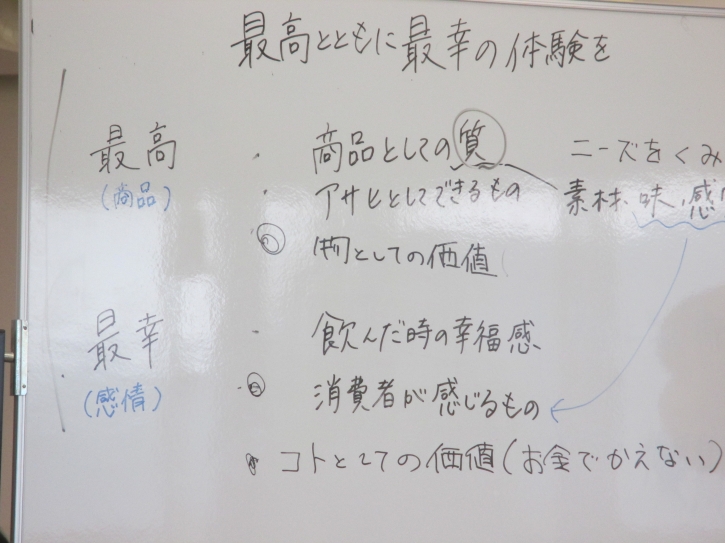 最高とともに最幸の体験を
最高 ・ 商品としての質 ニーズをくみ
(商品) ・ アサヒとしてできるもの 素材、味、感
物としての価値
最幸 ・ 飲んだ時の幸福感
(感情) ・ 消費者が感じるもの
・ コトとしての価値(お金でかえない)